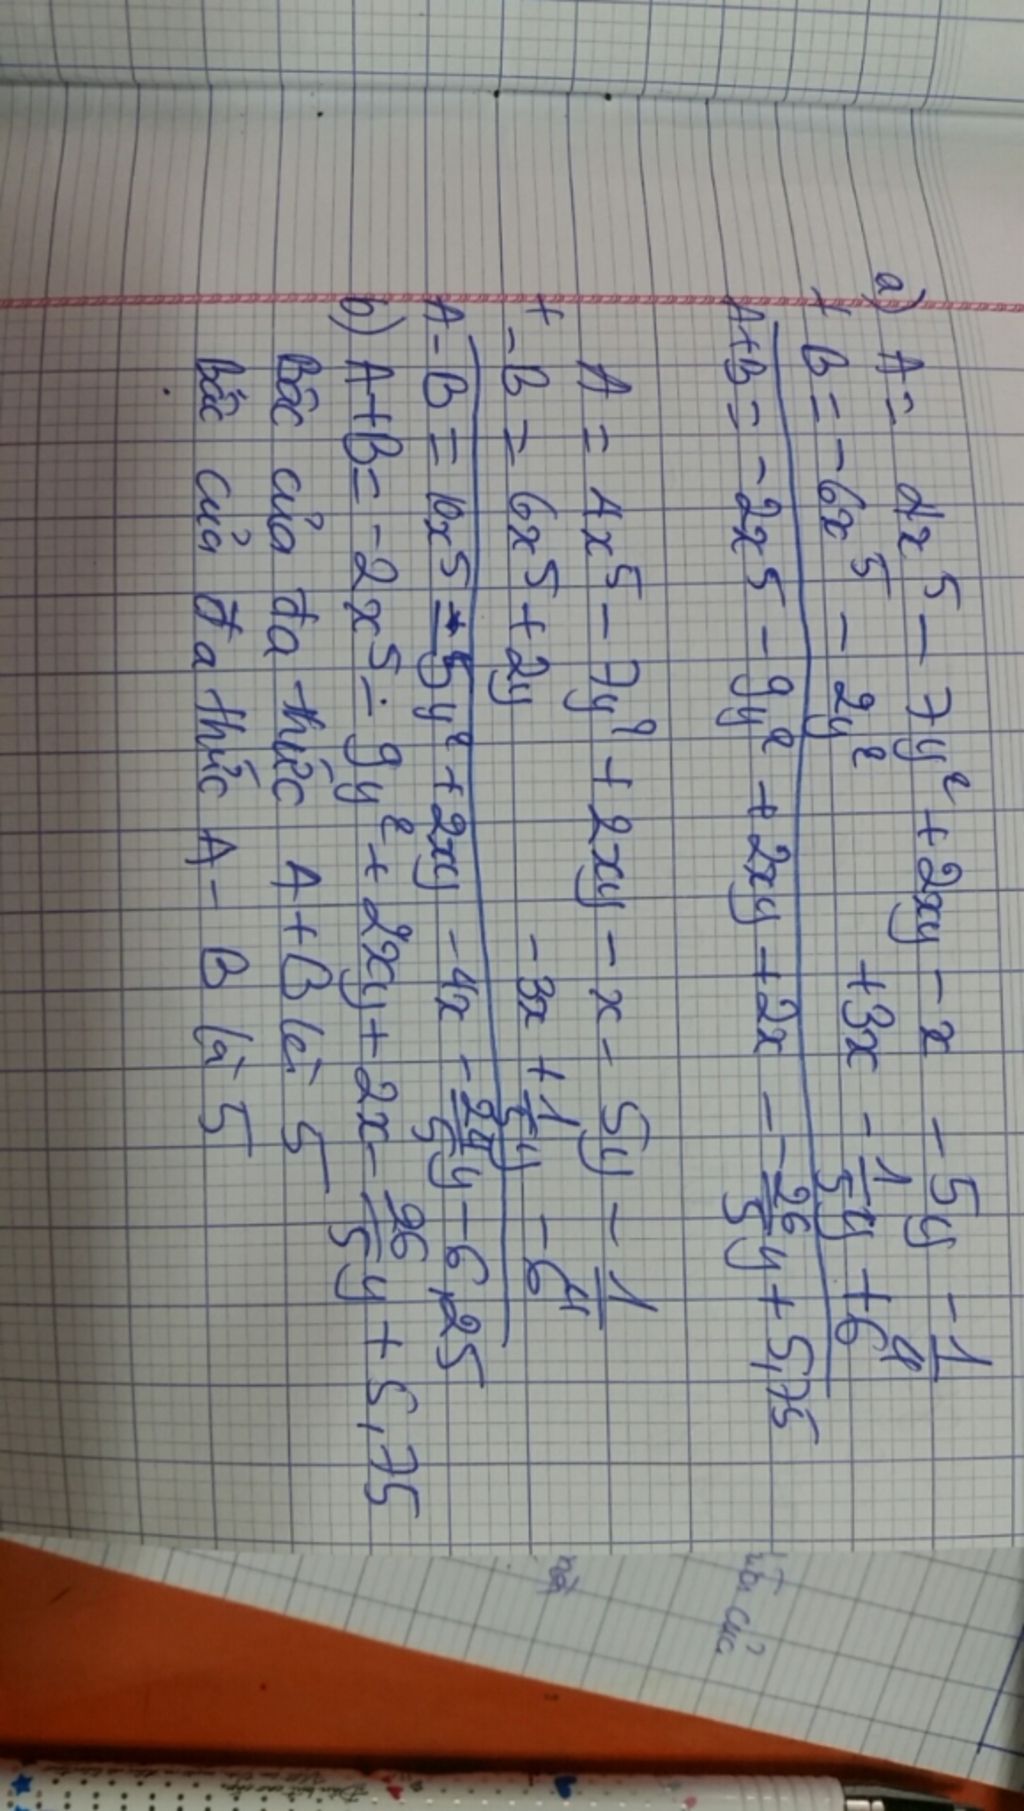 a) A = 4x⁵ - 7y² + 2xy - x - 5y - 1/4
+ B = -6x⁵ - 2y² + 3x - 1/5y + 6
A+B = -2x⁵ - 9y² + 2xy + 2x - 26/5y + 5,75
A = 4x⁵ - 7y² + 2xy - x - 5y - 1/4
+ -B = 6x⁵ + 2y - 3x + 1/5y - 6
A-B = 10x⁵ - 5y² + 2xy - 4x - 24/5y - 6,25
b) A+B = -2x⁵ - 9y² + 2xy + 2x - 26/5y + 5,75
Bậc của đa thức A+B là 5
Bậc của đa thức A - B là 5